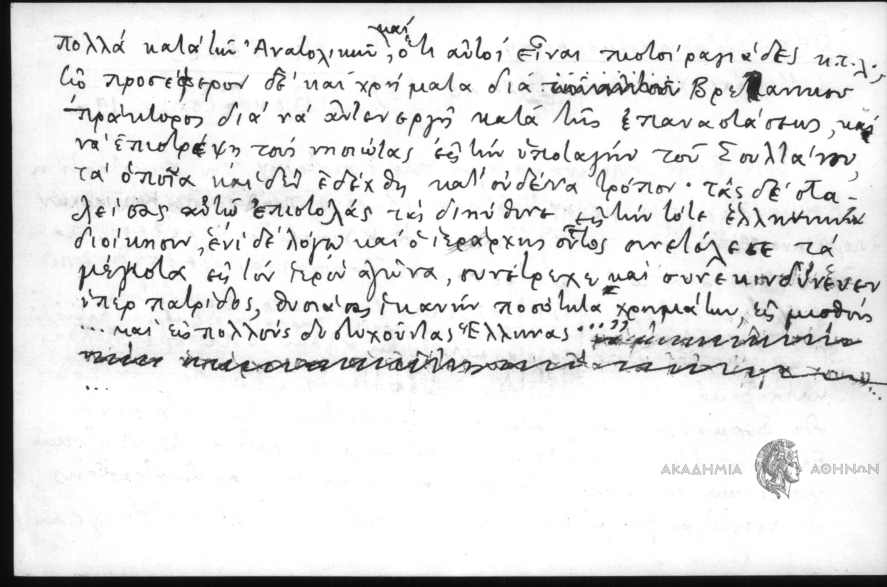 πολλά κατά την Ἀνατολικήν, καί ὅτι αὐτοί εἶναι πιστοί ραγιάδες κ.τ.λ.
τῶ προσέφερον δέ καί χρήματα διά Βρετανικου
πράκτορος διά νά ἀντενεργῆ κατά τῆς ἐπαναστάσεως, καί
νά ἐπιστρέψη τούς νησιώτας εἰς τήν ὑποταγήν τοῦ Σουλτάνου,
τά ὁποῖα καί δέν ἐδέχθη κατ' οὐδένα τρόπον· τάς δέ στα-
λείσας αὐτῶ ἐπιστολάς τάς διηύθυνε εἰς τήν τότε ἑλληνικήν
διοίκησιν, ἑνί δέ λόγω καί ὁ ἱεράρχης οὗτος συνετέλεσε τά
μέγιστα εἰς τόν ἱερόν ἀγῶνα, συνέτρεχε καί συνεκινδύνευεν
ὑπέρ πατρίδος, θυσιάσας ἱκανήν ποσότητα χρημάτων, εἰς μισθούς
... καί εἰς πολλούς δυστυχοῦντας Ἕλληνας ..."
...
ΑΚΑΔΗΜΙΑ ΑΘΗΝΩΝ